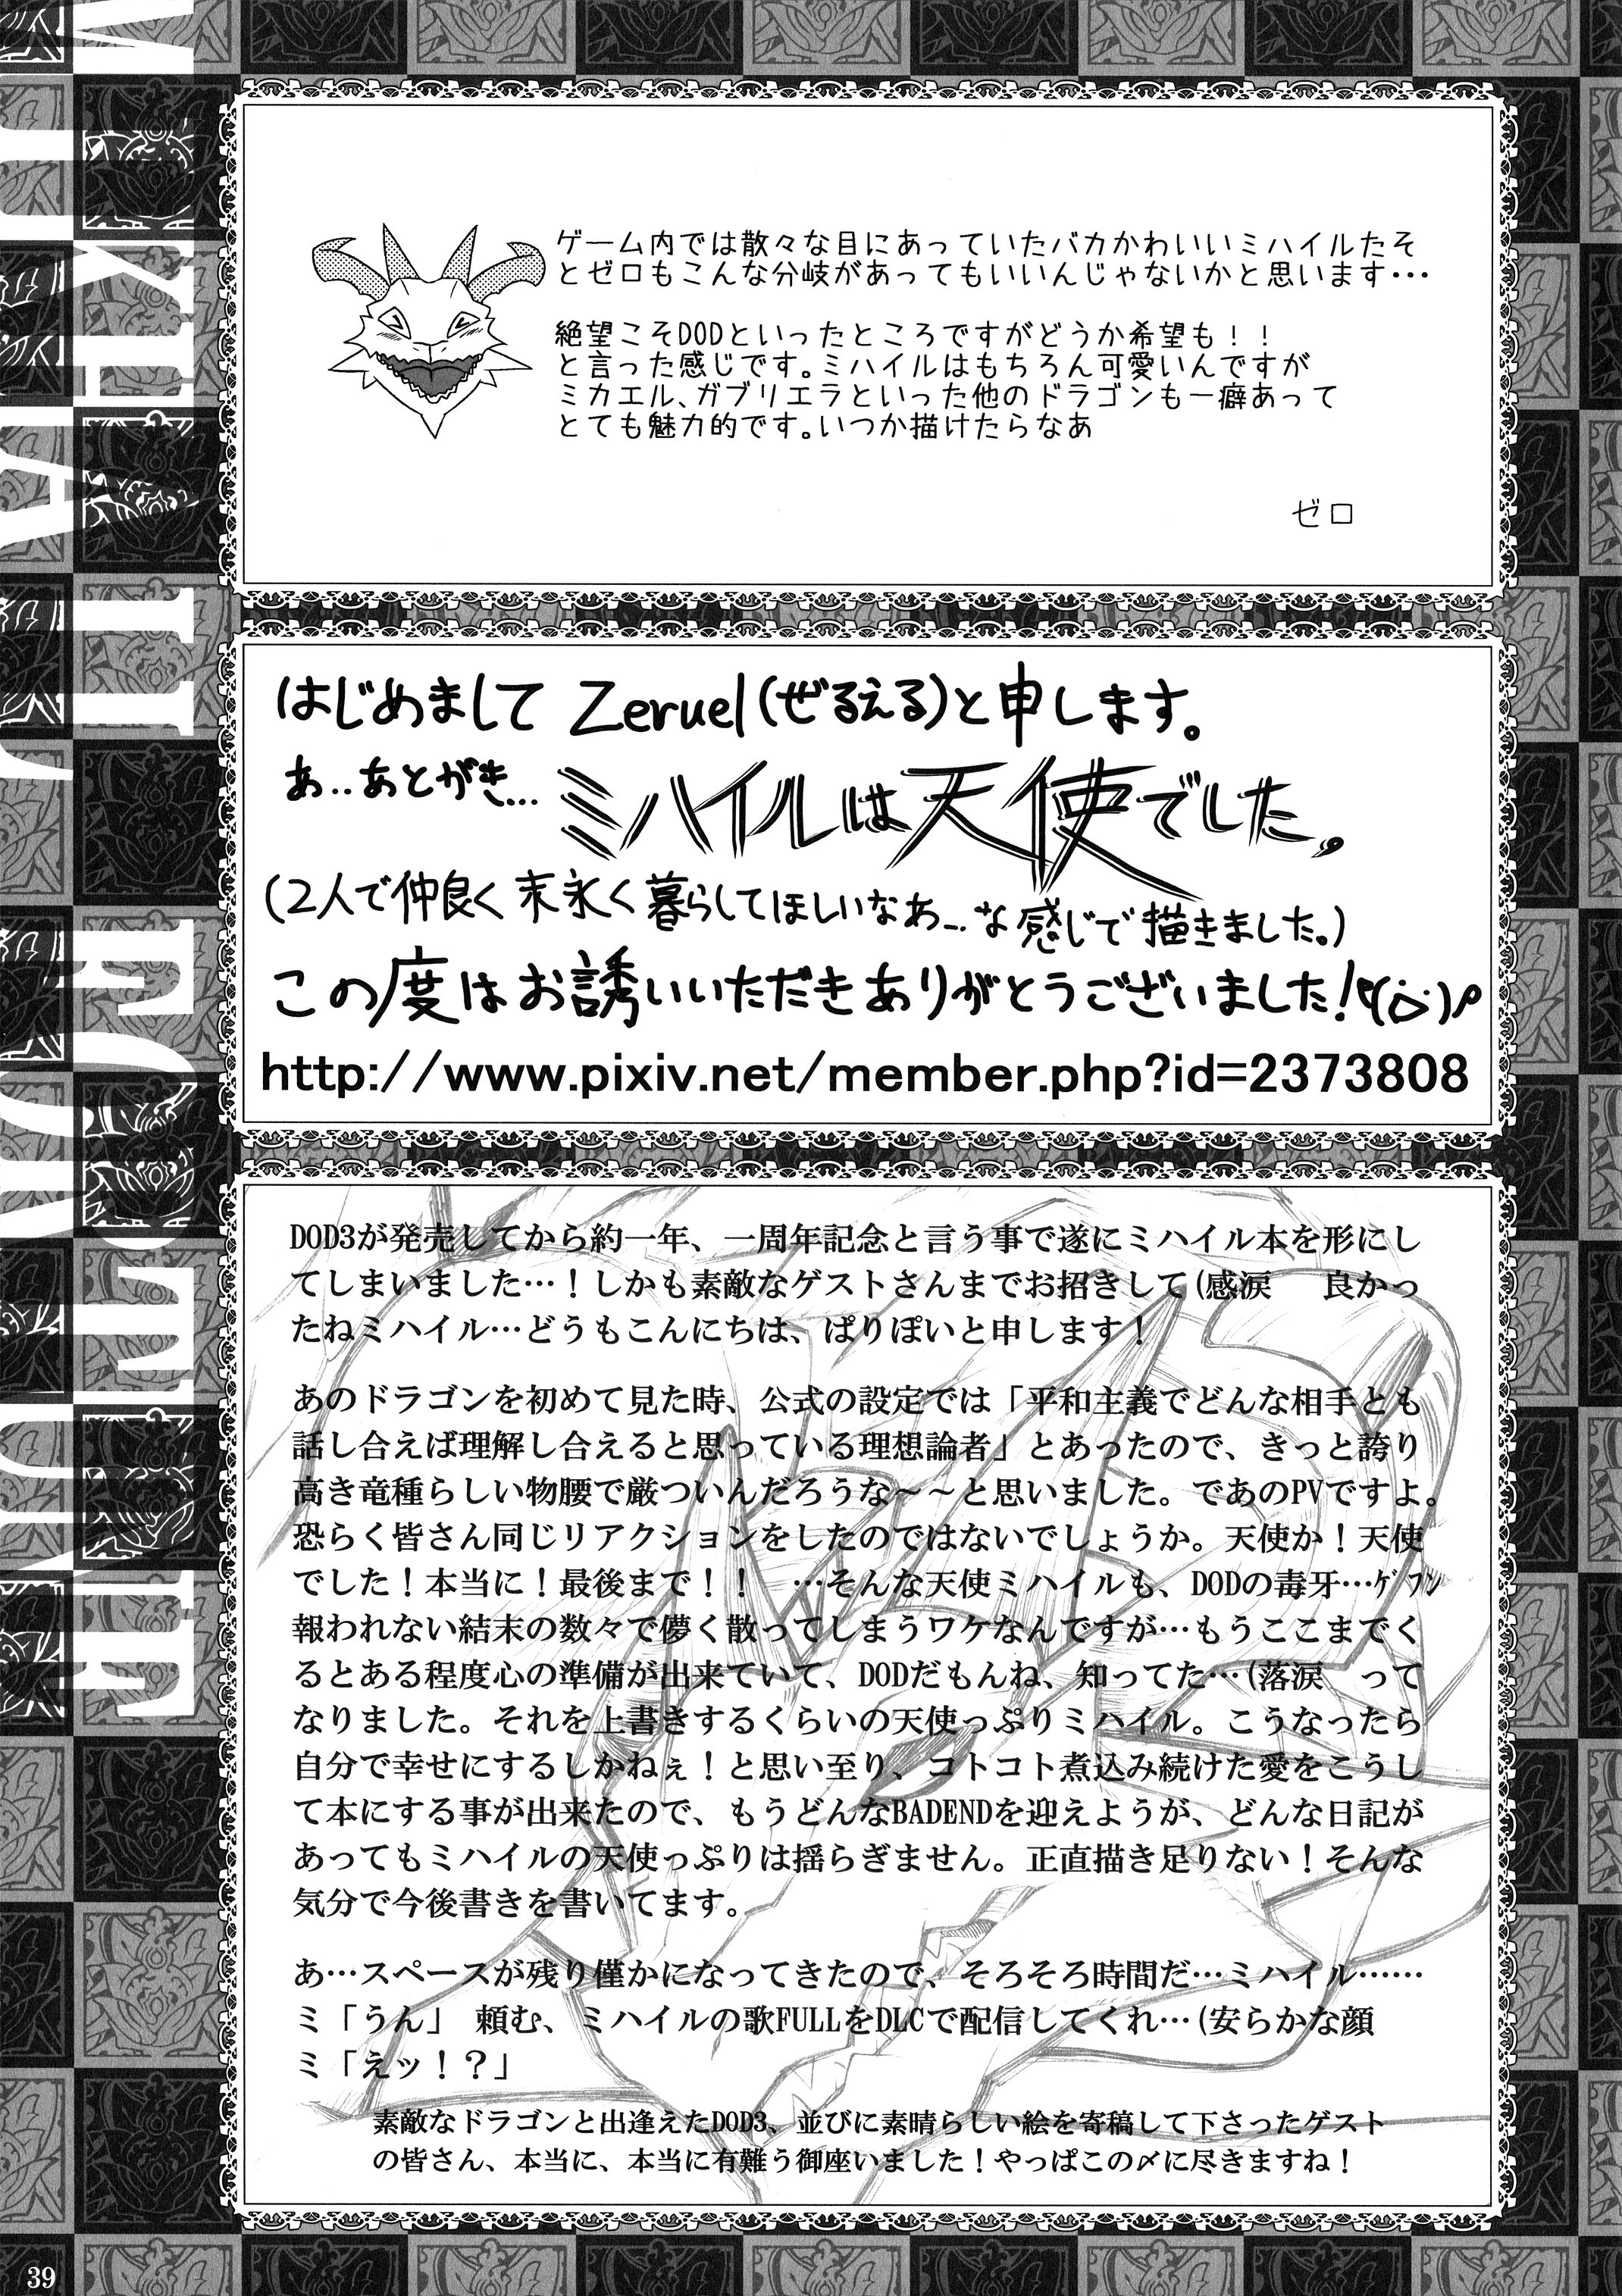 ゲーム内では散々な目にあっていたバカかわいいミハイルたそ
とゼロもこんな分岐があってもいいんじゃないかと思います・・・
絶望こそDODといったところですがどうか希望も！！
と言った感じです。ミハイルはもちろん可愛いんですが
ミカエル、ガブリエラといった他のドラゴンも一癖あって
とても魅力的です。いつか描けたらなあ
ゼロ
はじめまして Zeruel(ぜるえる)と申します。
あ..あとがき... ミハイルは天使でした。
(2人で仲良く末永く暮らしてほしいなあ...な感じで描きました。)
この度はお誘いいただきありがとうございました!
http://www.pixiv.net/member.php?id=2373808
DOD3が発売してから約一年、一周年記念と言う事で遂にミハイル本を形にし
てしまいました…！しかも素敵なゲストさんまでお招きして(感涙　良かっ
たねミハイル…どうもこんにちは、ぱりぽいと申します！
あのドラゴンを初めて見た時、公式の設定では「平和主義でどんな相手とも
話し合えば理解し合えると思っている理想論者」とあったので、きっと誇り
高き竜種らしい物腰で厳ついんだろうな～～と思いました。であのPVですよ。
恐らく皆さん同じリアクションをしたのではないでしょうか。天使か！天使
でした！本当に！最後まで！！　…そんな天使ミハイルも、DODの毒牙…ｹﾞﾌﾝ
報われない結末の数々で儚く散ってしまうワケなんですが…もうここまでく
るとある程度心の準備が出来ていて、DODだもんね、知ってた…(落涙　って
なりました。それを上書きするくらいの天使っぷりミハイル。こうなったら
自分で幸せにするしかねぇ！と思い至り、コトコト煮込み続けた愛をこうし
て本にする事が出来たので、もうどんなBADENDを迎えようが、どんな日記が
あってもミハイルの天使っぷりは揺らぎません。正直描き足りない！そんな
気分で今後書きを書いてます。
あ…スペースが残り僅かになってきたので、そろそろ時間だ…ミハイル……
ミ「うん」　頼む、ミハイルの歌FULLをDLCで配信してくれ…(安らかな顔
ミ「えッ！？」
素敵なドラゴンと出逢えたDOD3、並びに素晴らしい絵を寄稿して下さったゲスト
の皆さん、本当に、本当に有難う御座いました！やっぱこの〆に尽きますね！
39